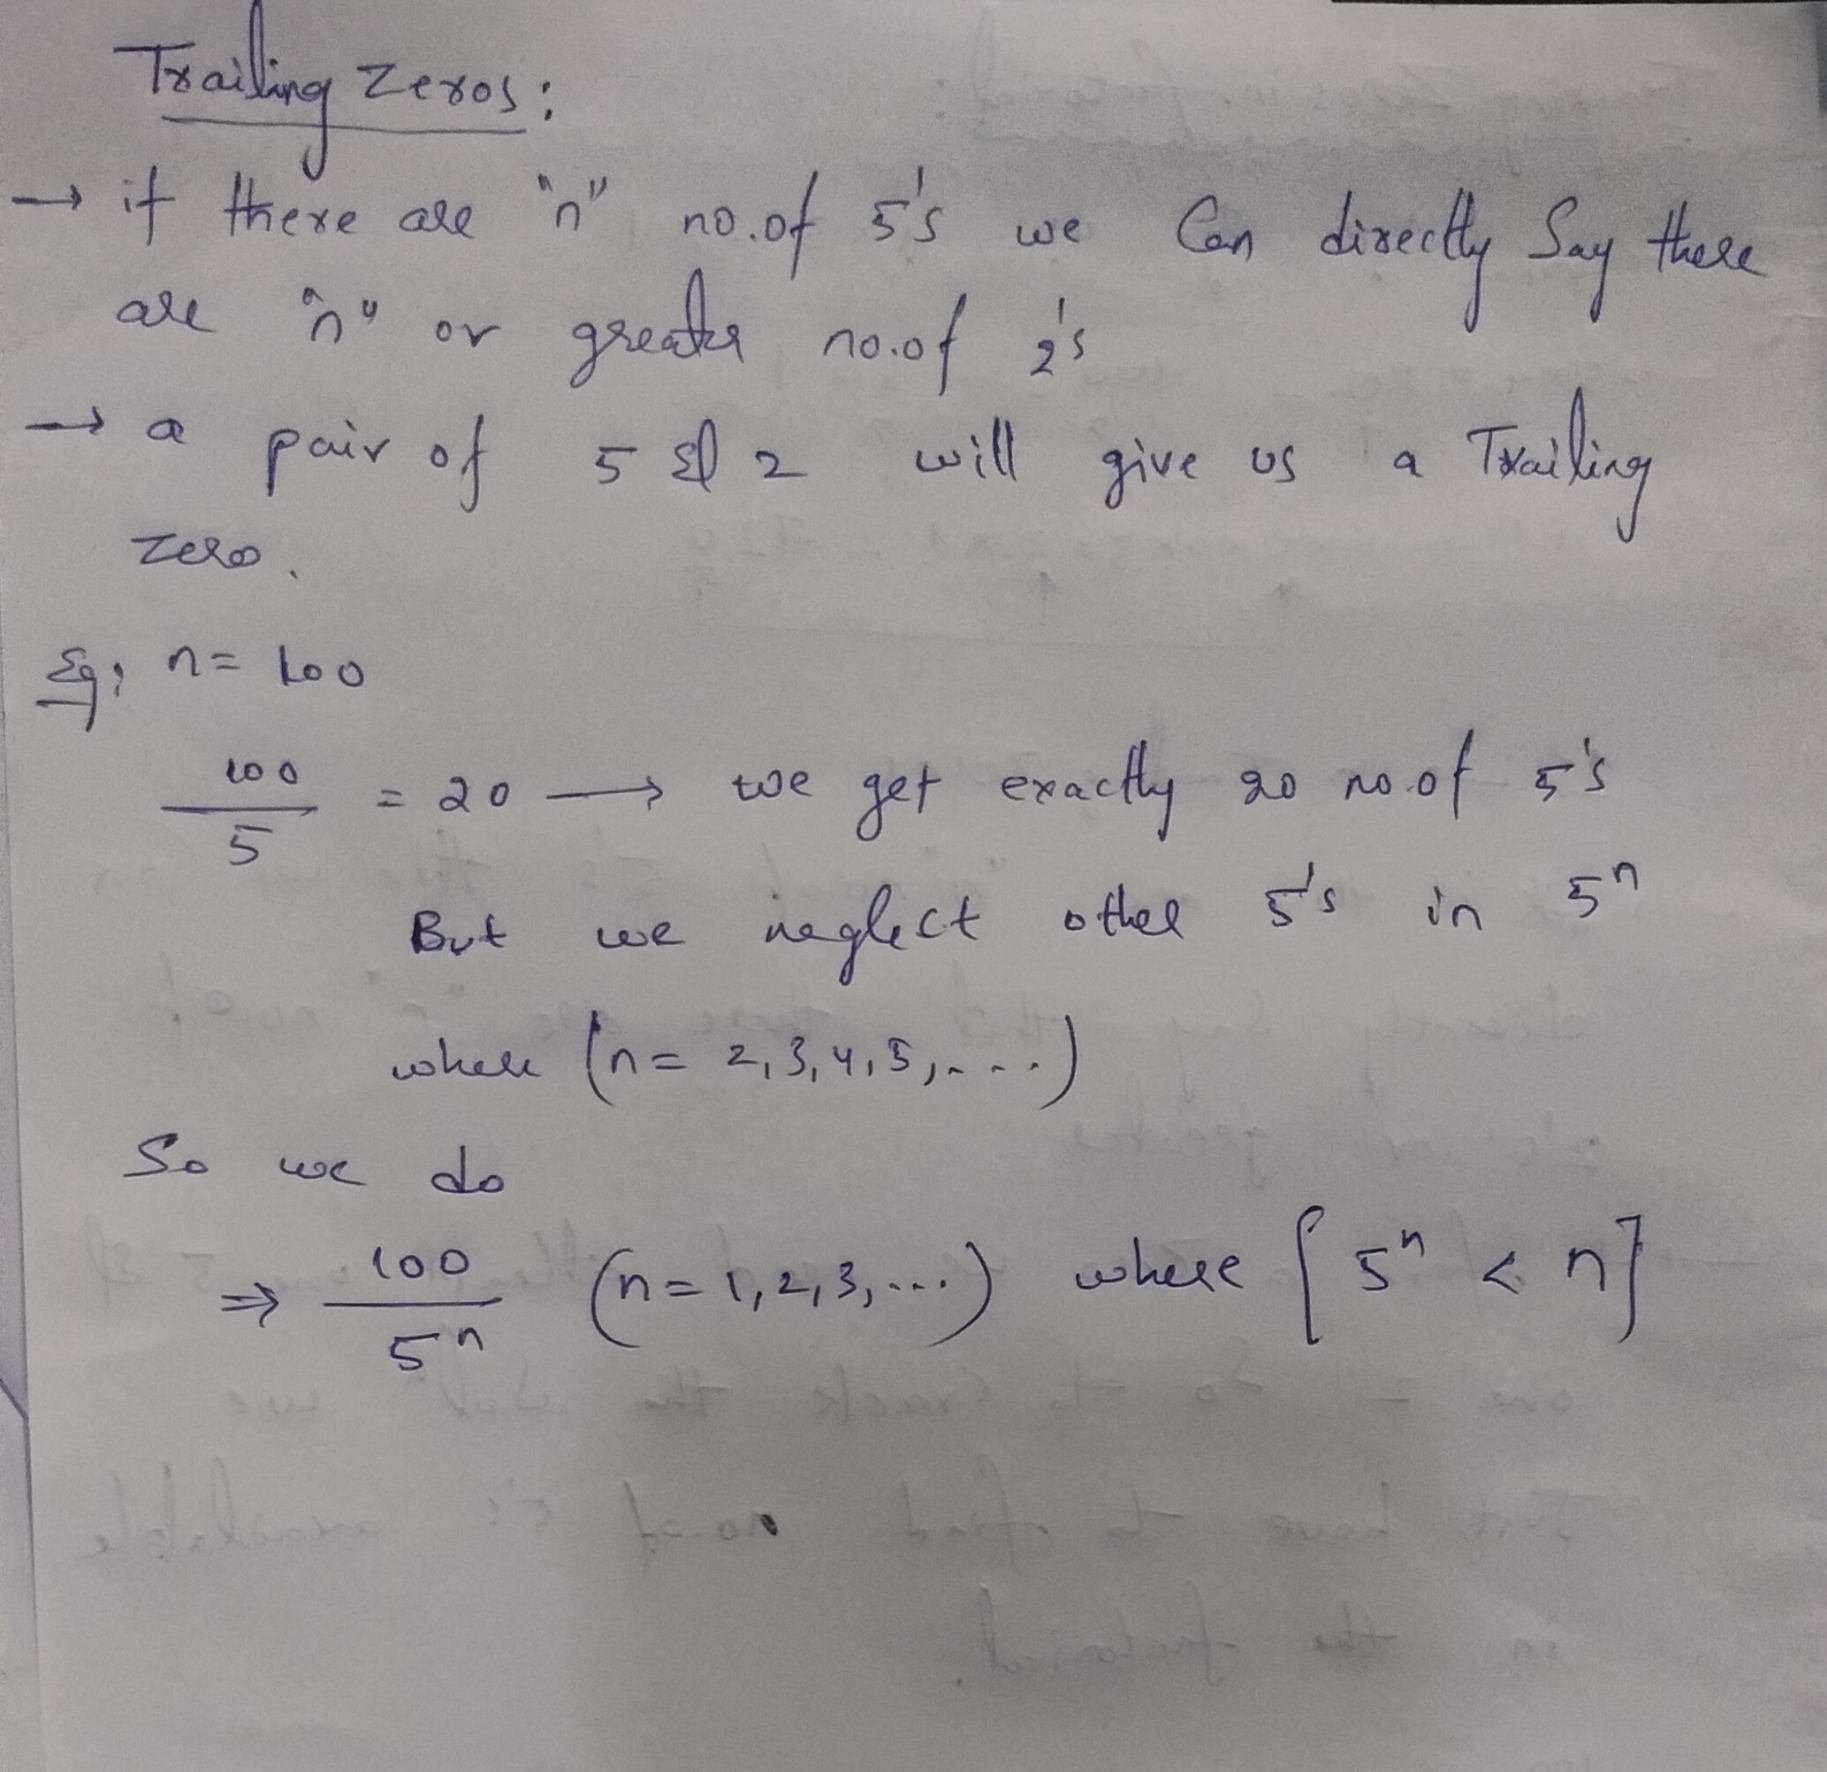 Trailing Zeros:
→ if there are "n" no.of 5's we Can directly Say there
are "n" or greater no.of 2's
→ a pair of 5 & 2 will give us a Trailing
zero.
Eg: n = 100
100/5 = 20 → we get exactly 20 no.of 5's
But we neglect other 5's in 5ⁿ
where (n = 2,3,4,5,....)
So we do
⇒ 100/5ⁿ (n = 1,2,3,...) where [5ⁿ < n]